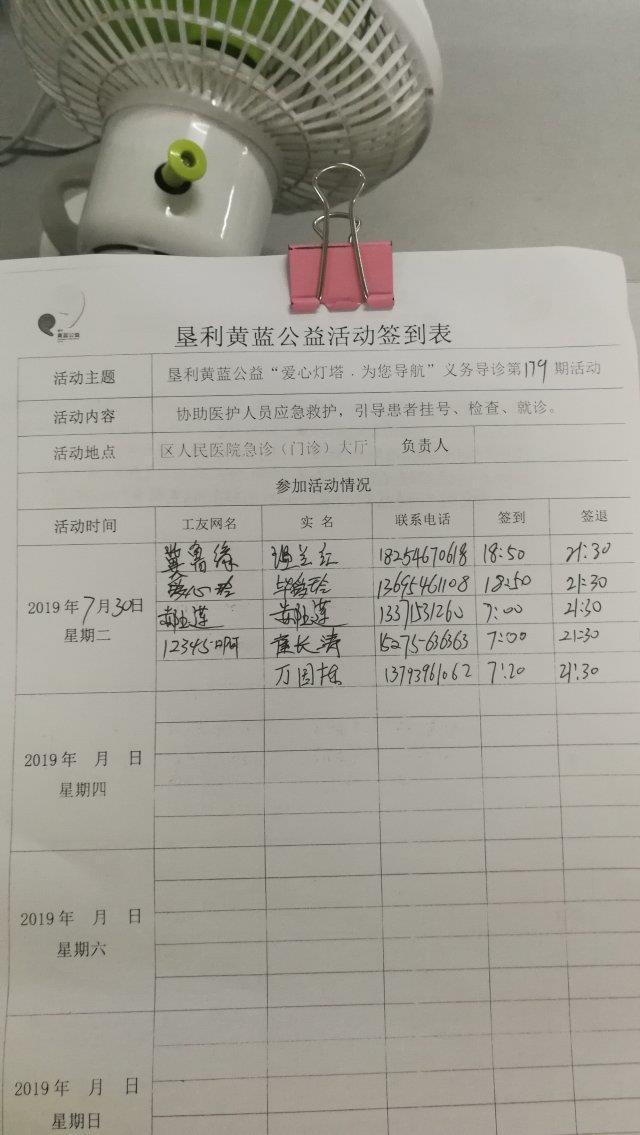 黄蓝公益
垦利黄蓝公益活动签到表
活动主题 垦利黄蓝公益“爱心灯塔．为您导航”义务导诊第179期活动
活动内容 协助医护人员应急救护，引导患者挂号、检查、就诊。
活动地点 区人民医院急诊（门诊）大厅 负责人
参加活动情况
活动时间 工友网名 实名 联系电话 签到 签退
18254670618 18:50 21:30
爱心玲 13695461108 18:50 21:30
2019年7月30日
星期二
13371531260 7:00 21:30
12345 崔长涛 15275636363 7:00 21:30
万国栋 13793961062 7:20 21:30
2019年 月 日
星期四
2019年 月 日
星期六
2019年 月 日
星期日